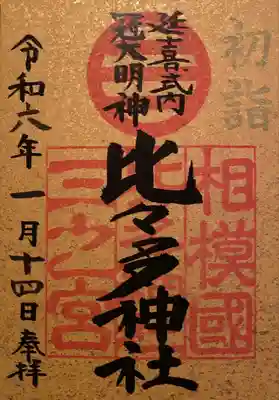 初詣
延喜式内
冠大明神
比々多神社
令和六年 一月十四日 奉拝
相模國
三之宮